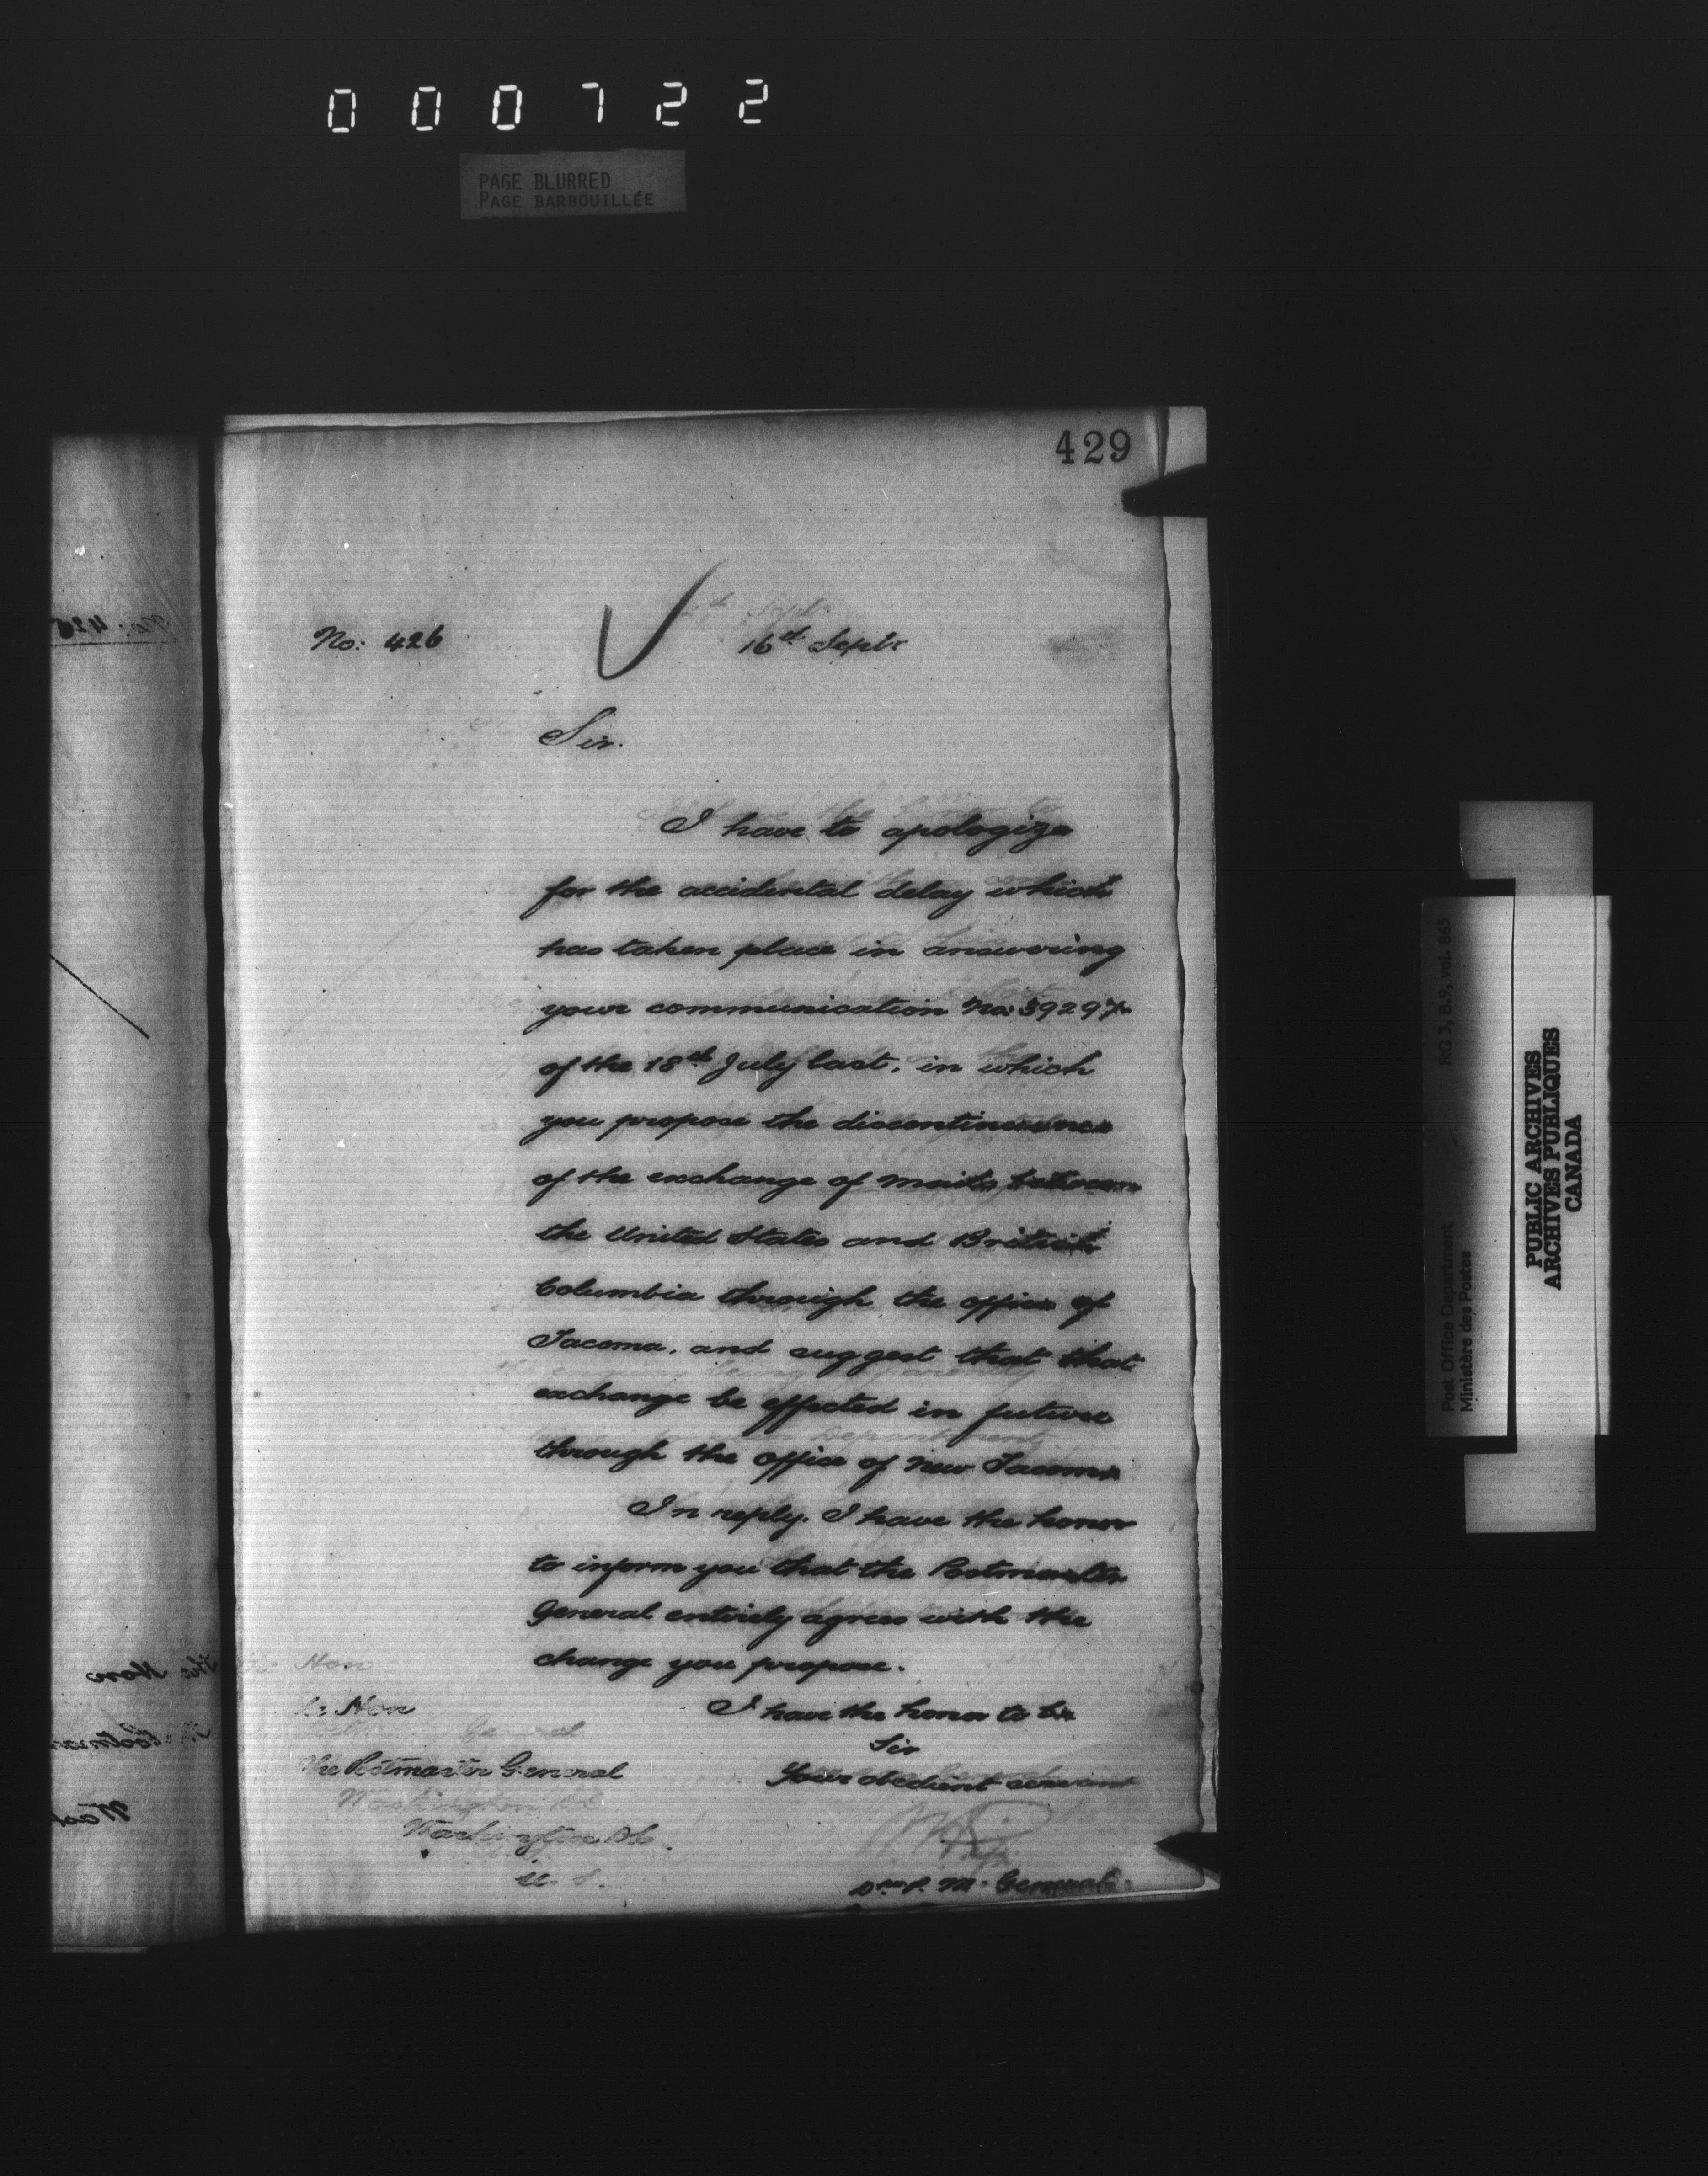 000722
PAGE BLURRED
PAGE BARBOUILLÉE
429
No: 426
16th Septr
Sir.
I have to apologize
for the accidental delay which
has taken place in answering
your communication No: 39297
of the 18th July last, in which
you propose the discontinuance
of the exchange of mails between
the United States and British
Columbia through the office of
Tacoma, and suggest that that
exchange be effected in future
through the office of New Tacoma
In reply, I have the honor
to inform you that the Postmaster
General entirely agrees with the
change you propose.
I have the honor to be
Sir
Your obedient servant
D. P. M. General
Hon
The Postmaster General
Washington D.C.
U. S.
RG 3, B.9, vol. 863
Post Office Department
Ministère des Postes
PUBLIC ARCHIVES
ARCHIVES PUBLIQUES
CANADA